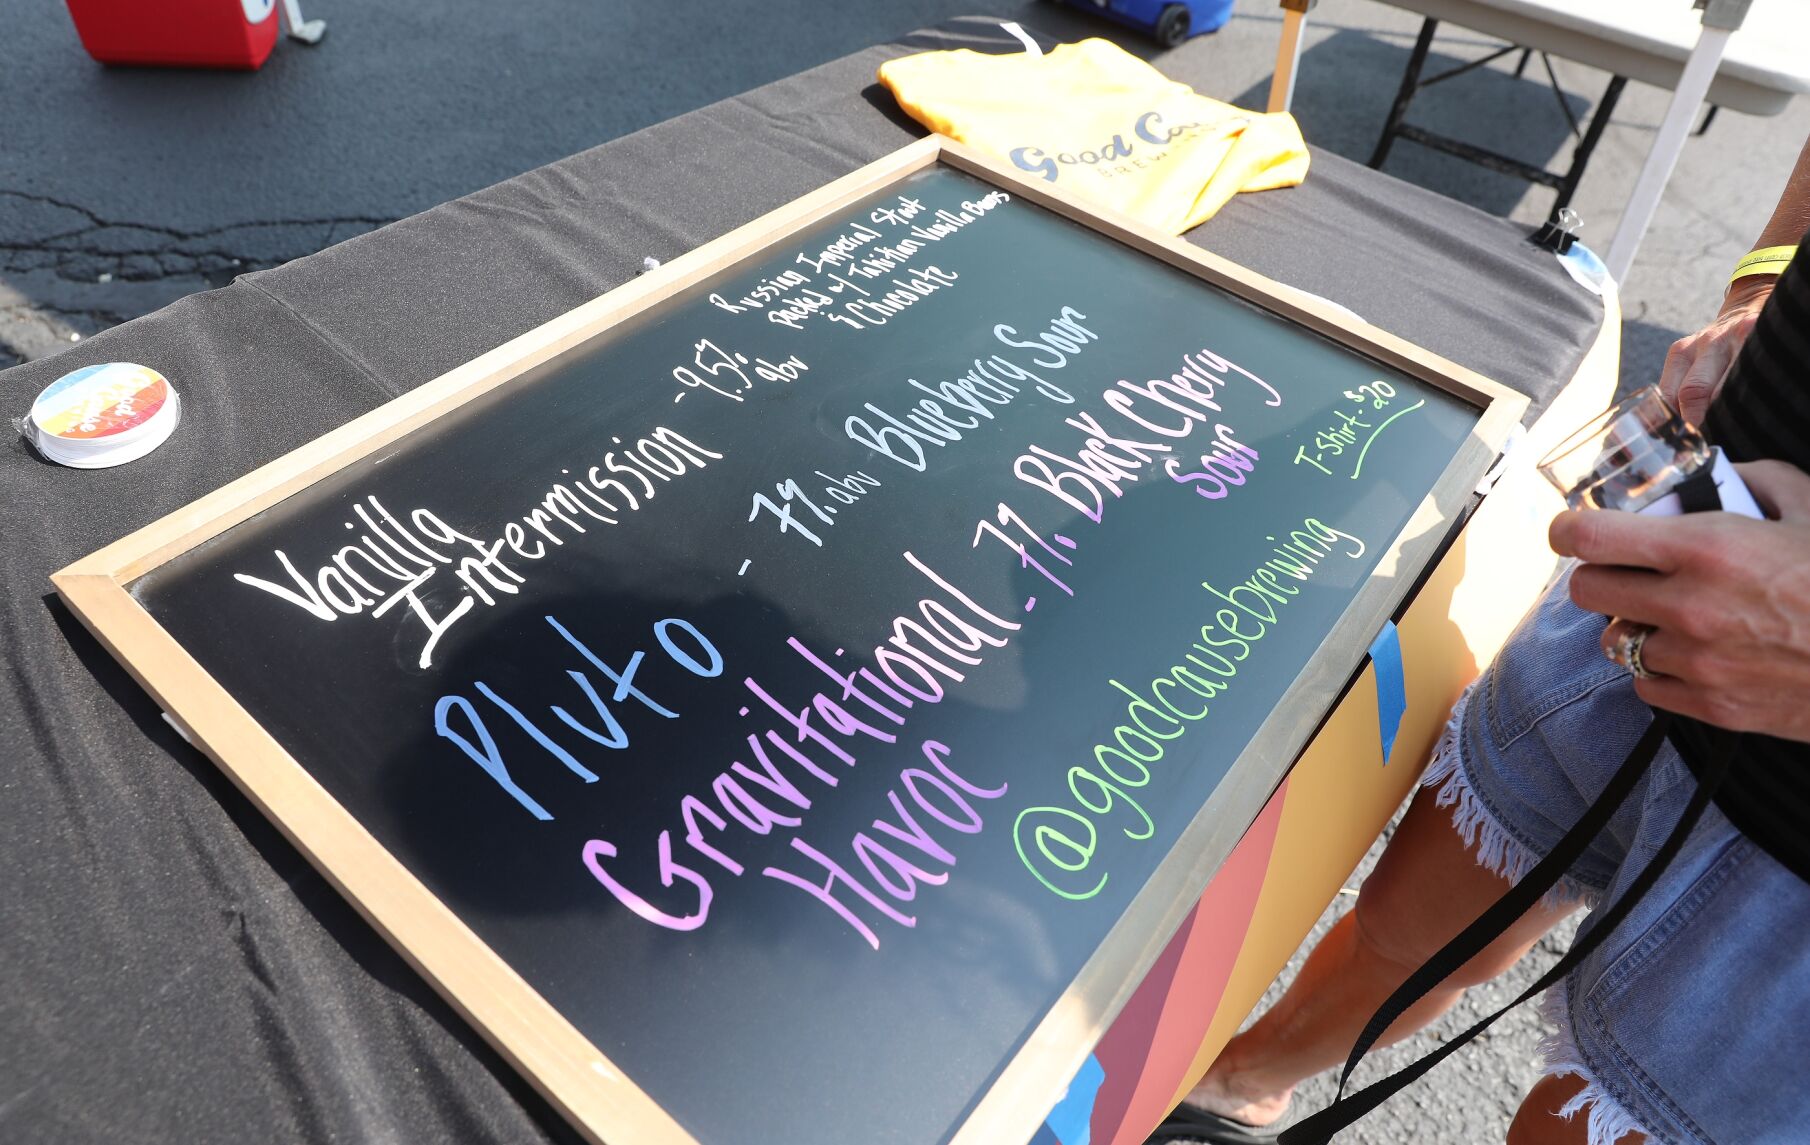 Good
BREWING
Vanilla
Intermission - 9.5% abv
Russian Imperial Stout
packed w/ Tahitian Vanilla Beans
& Chocolate
Pluto - 7%. abv Blueberry Sour
Gravitational
Havoc - 7% Black Cherry
Sour
T-shirt $20
@goodcausebrewing